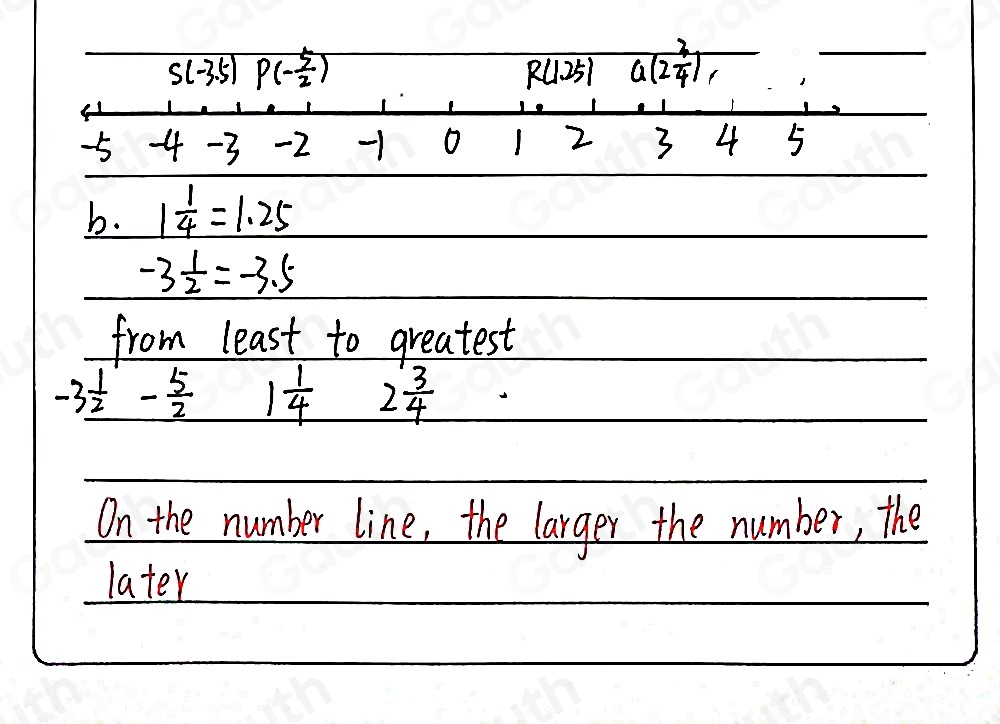 S(-3.5) P(-5/2) R(1.25) Q(2 3/4),
-5 -4 -3 -2 -1 0 1 2 3 4 5
b. 1 1/4 = 1.25
-3 1/2 = -3.5
from least to greatest
-3 1/2 -5/2 1 1/4 2 3/4 .
On the number line, the larger the number, the
later